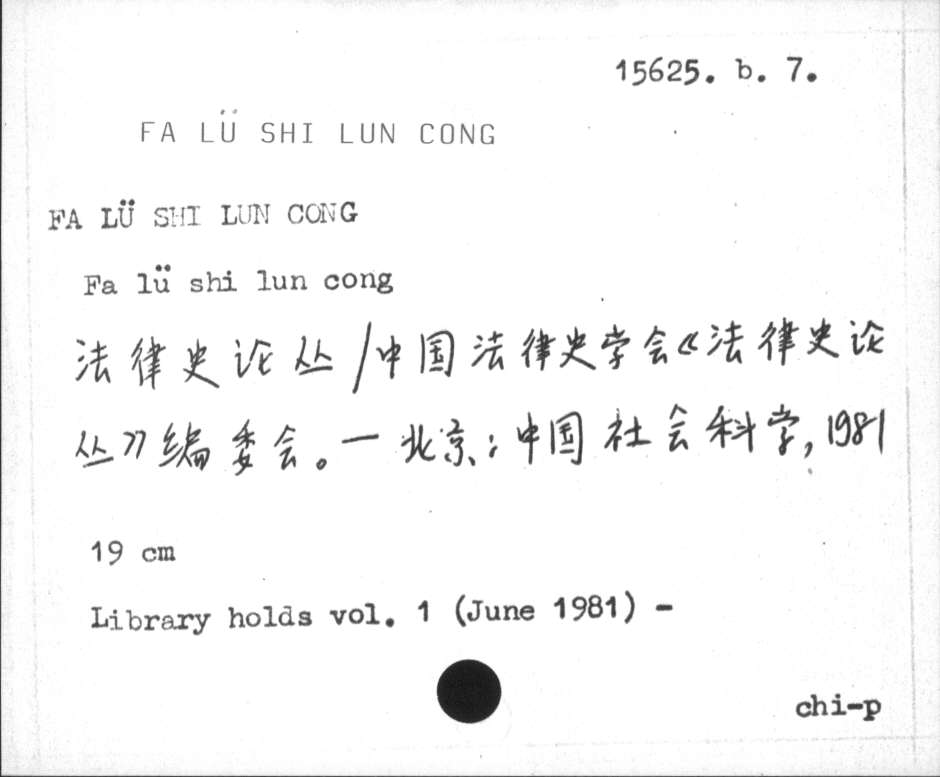 15625. b. 7.
FA LÜ SHI LUN CONG
FA LÜ SHI LUN CONG
Fa lü shi lun cong
法律史论丛/中国法律史学会《法律史论
丛》编委会。一北京:中国社会科学,1981
19 cm
Library holds vol. 1 (June 1981) -
chi-p